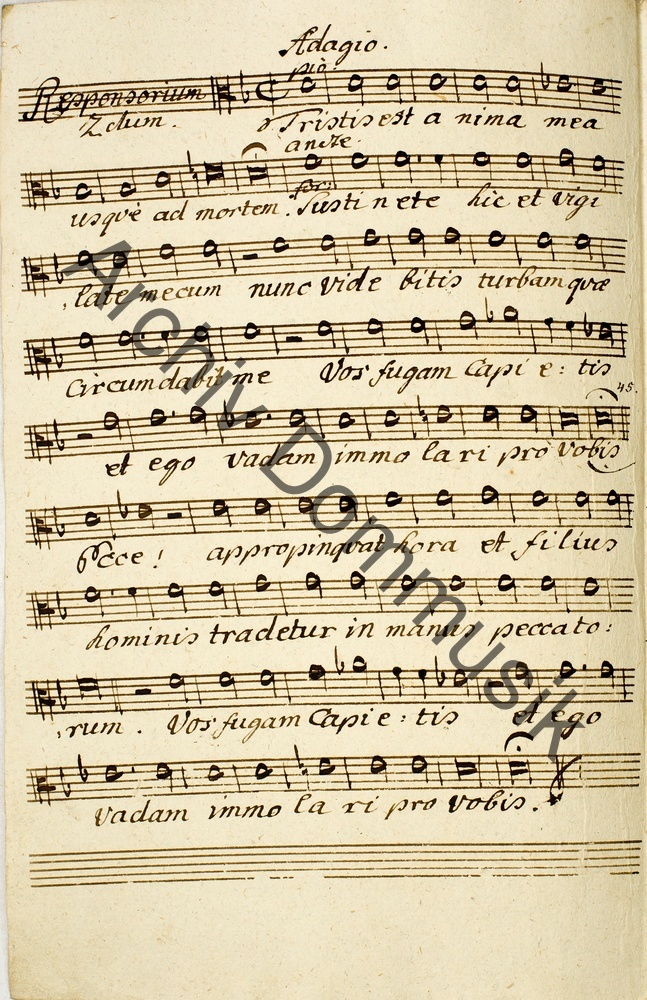 Adagio.
piò:
Responsorium
2dum.
Tristis est a nima mea
usquè ad mortem. Susti n ete hic et vigi
for:
late mecum nunc vide bitis turbam quæ
Circumdabit me Vos fugam Capi e: tis
45.
et ego vadam immo la ri prò vobis
Ecce! appropinquat hora et filius
hominis tradetur in manus peccato:
rum. Vos fugam Capi e: tis et ego
vadam immo la ri pro vobis.
Archiv Dommusik